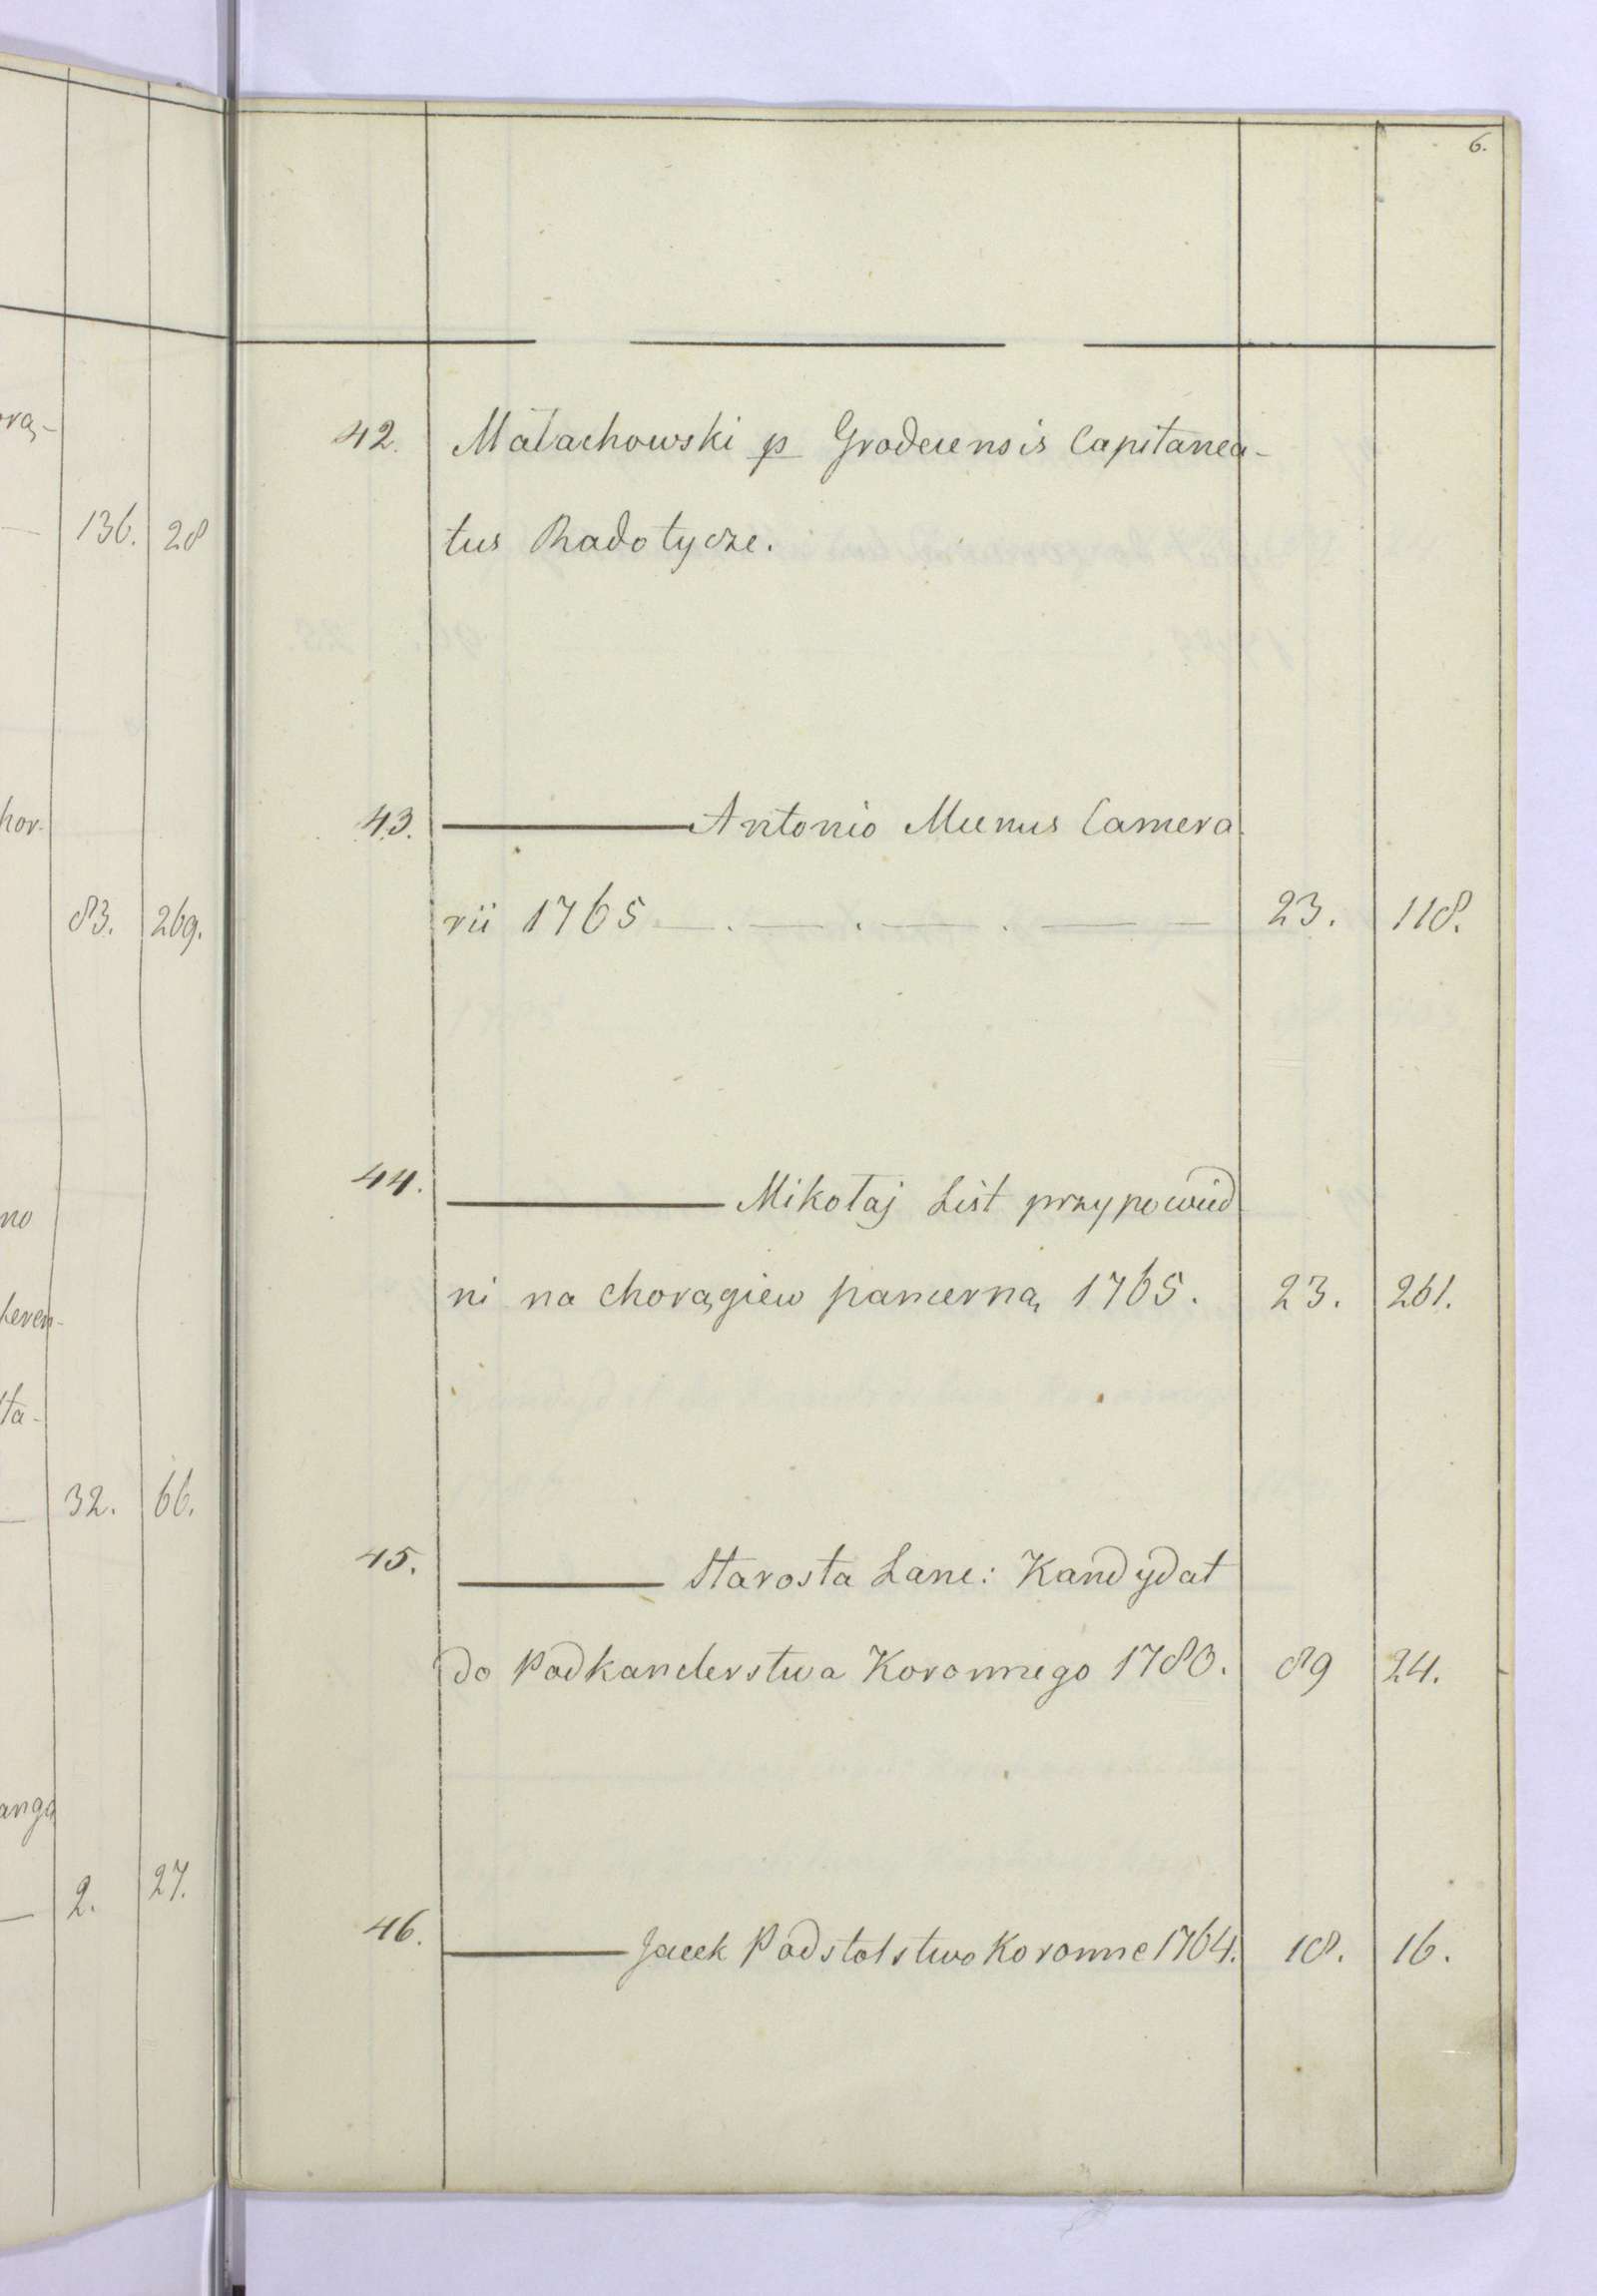 6.
42. Małachowski p Grodecensis Capitanea-
tus Radotycze.
43. ——— Antonio Munus Camera-
rii 1765 — . — . — . — — 23. 118.
44. ——— Mikołaj List przypowied
ni na chorągiew pancerną 1765. 23. 261.
45. ——— Starosta Lanc: Kandydat
do Podkanclerstwa Koronnego 1780. 89 24.
46. ——— Jacek Podstolstwo Koronne 1764. 18. 16.
orą-
136. 28
hor-
83. 269.
no
keren-
ta-
32. 66.
2. 27.